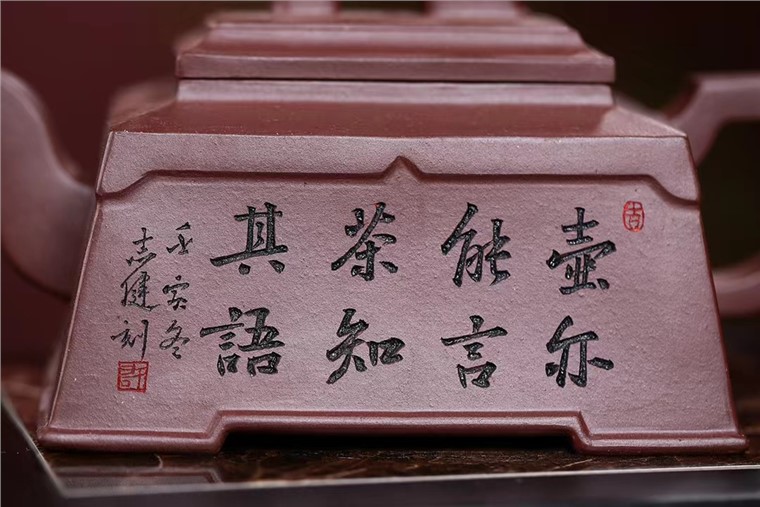 壺尒
能言
茶知
其語
壬寅冬
志健刻
許